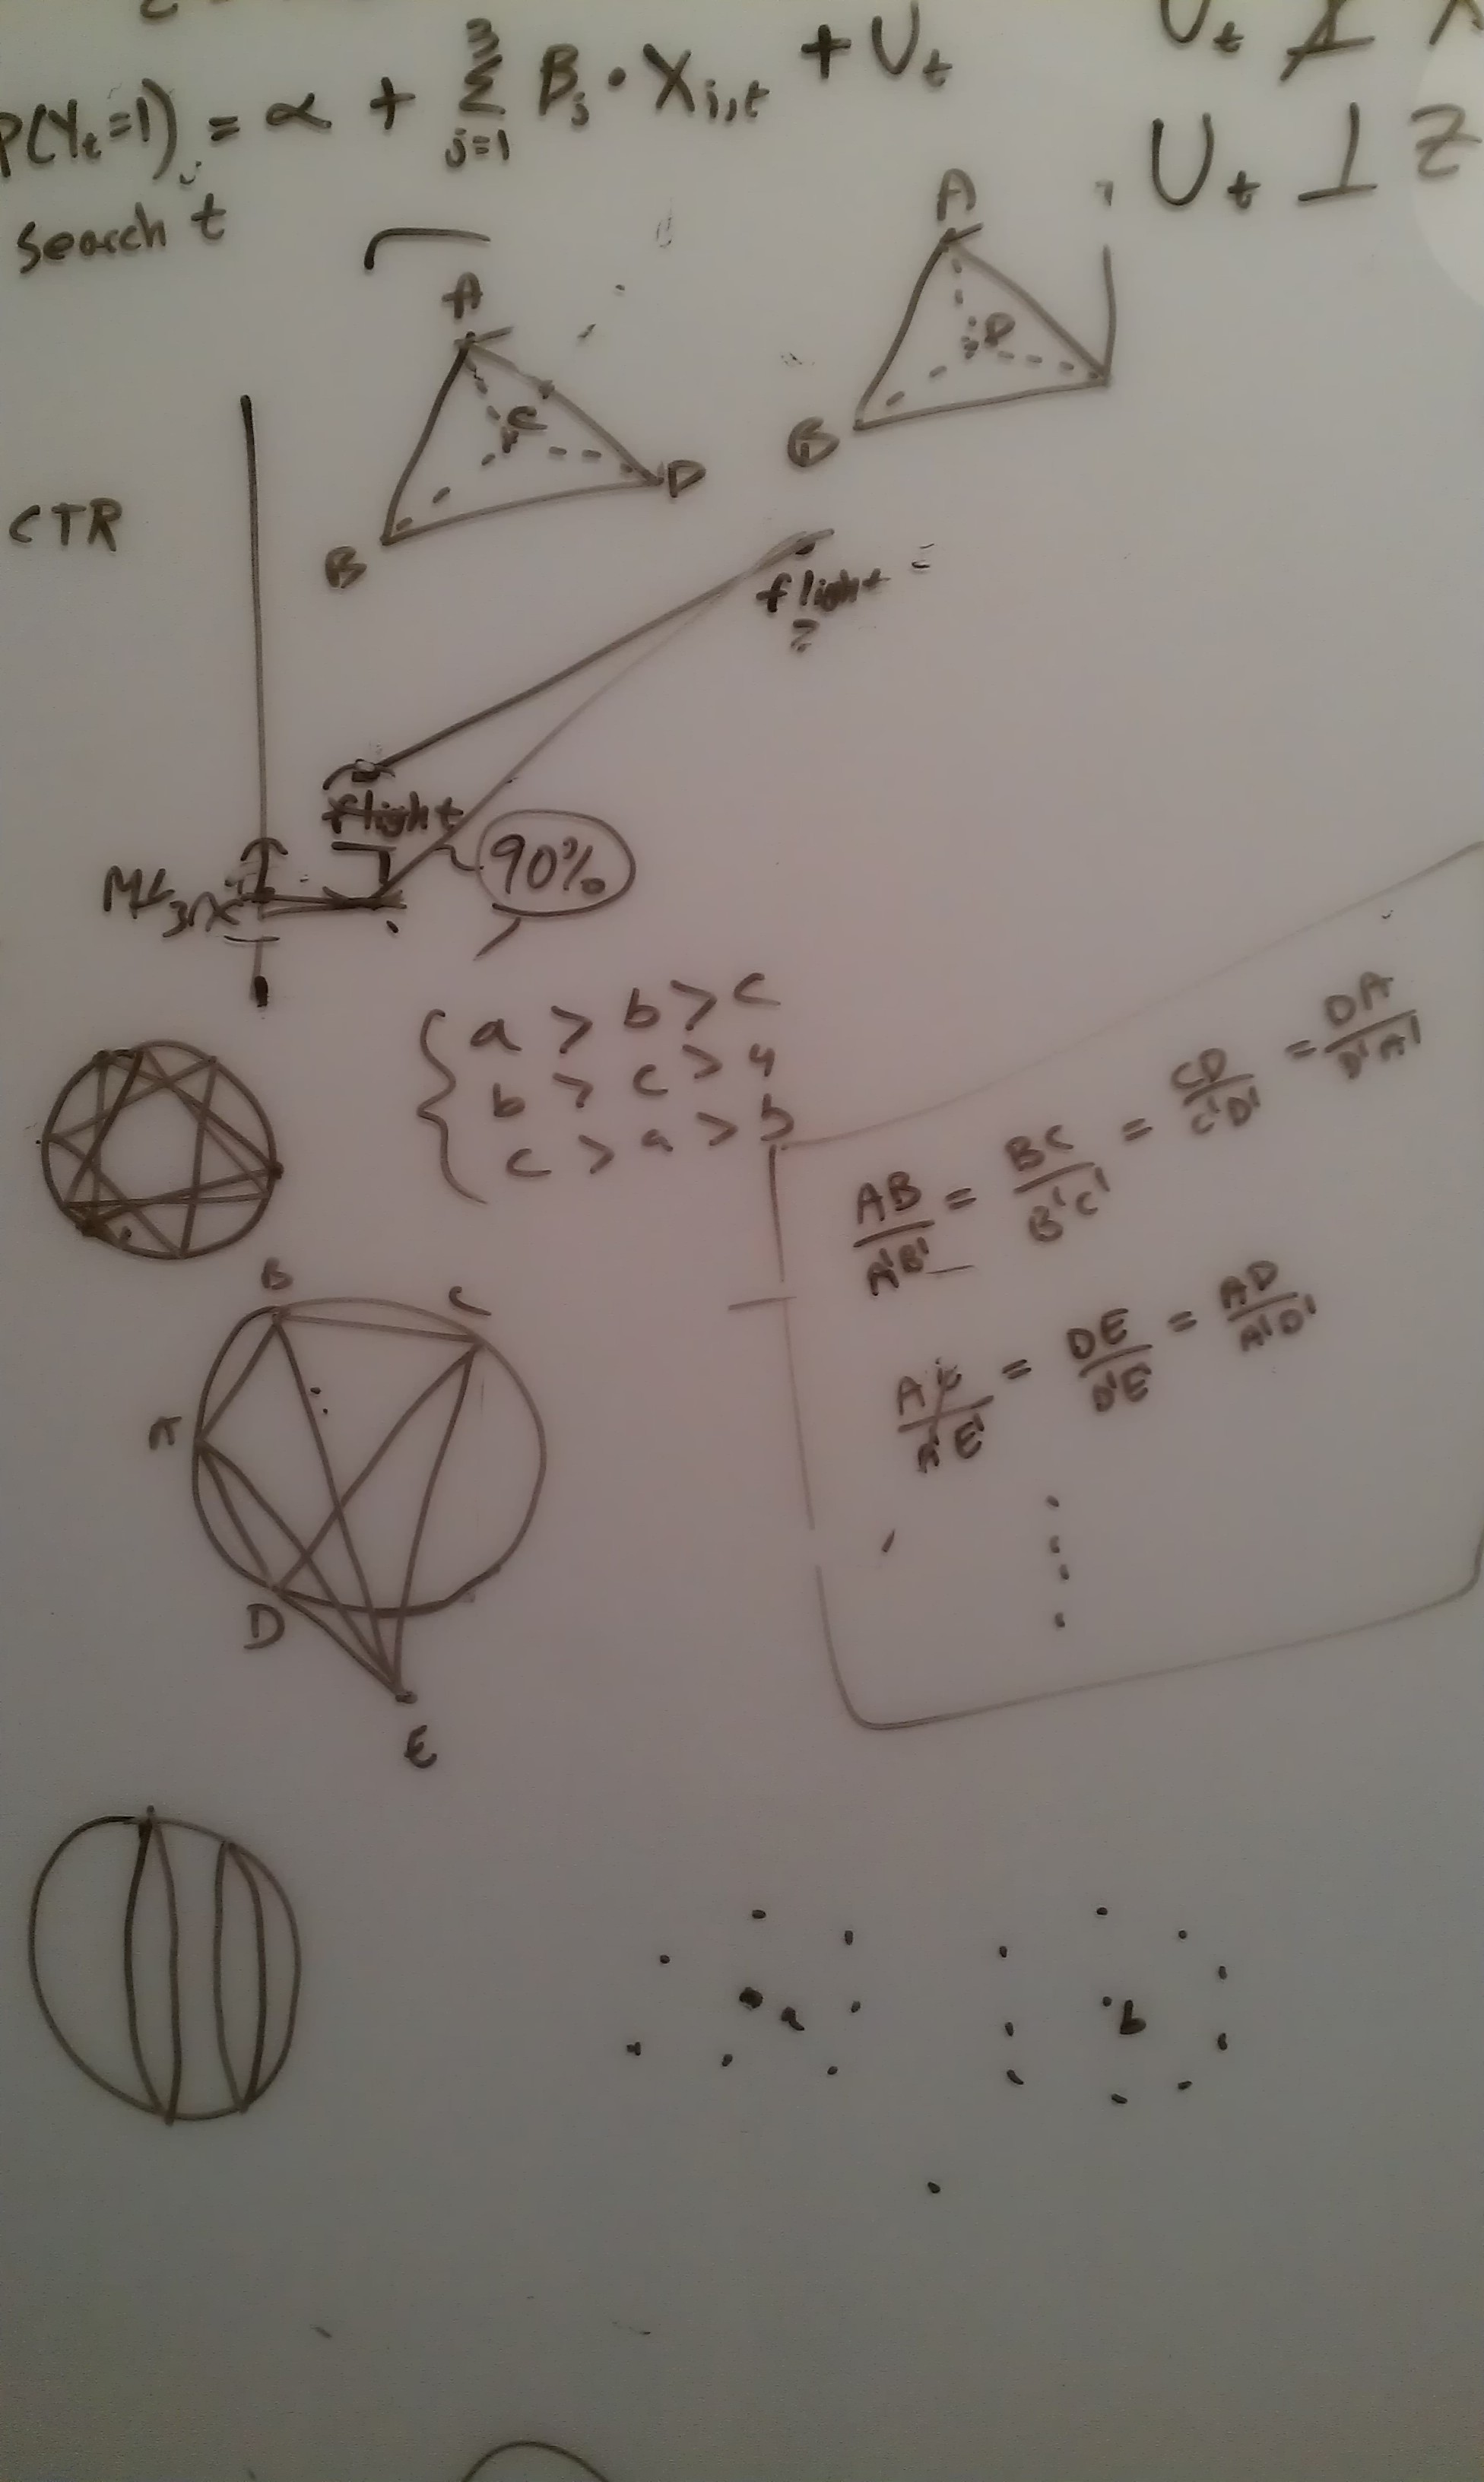 P(Yₜ=1) = α + 3 Σ j=1 Bⱼ · Xⱼ,ₜ + Uₜ
Uₜ ⊥ Z
Search t
A
A
C
D
B
B
CTR
flight
2
flight
90%
{ a > b > c
b > c > a
c > a > b
AB/A'B' = BC/B'C' = CD/C'D' = DA/D'A'
DE/D'E' = AD/A'D'
B
C
A
D
E
a
b